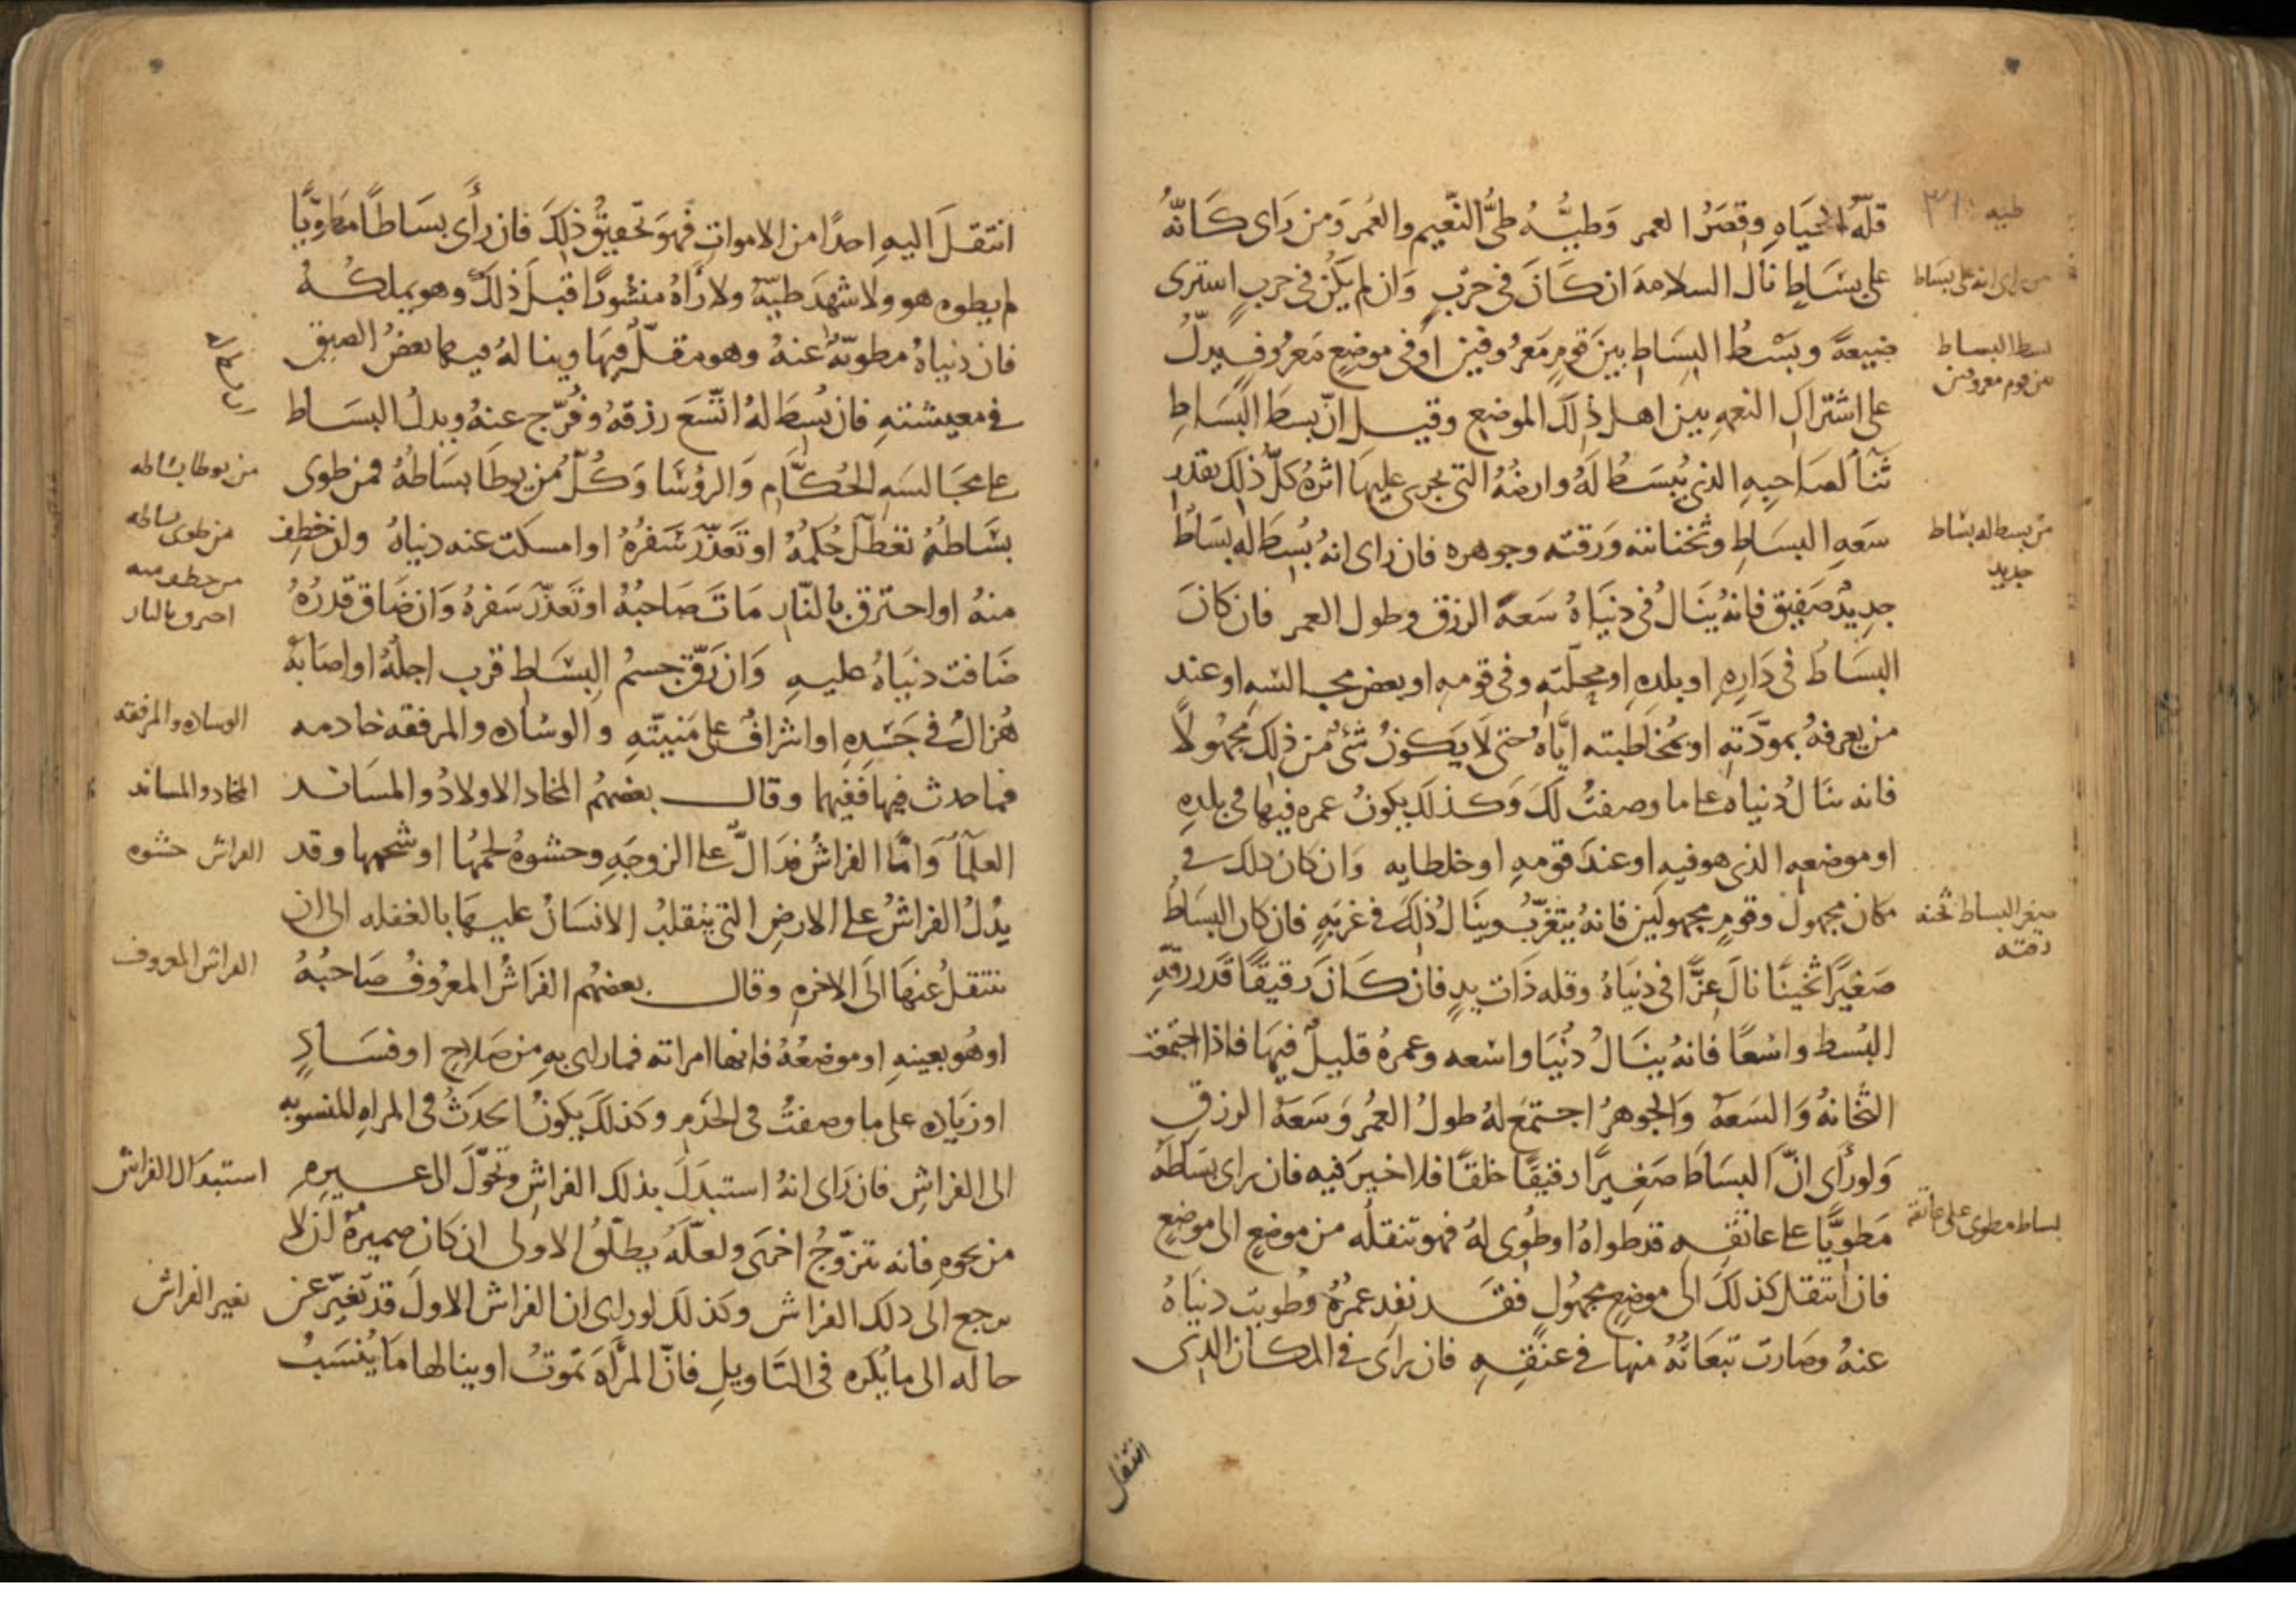 قلّه الحياه وقصر العمر وطيّه طيّ النعيم والعمر ومن راى كانّه
على بساط نال السلامه ان كان فى حرب وان لم يكن فى حرب استرى
ضيعه وبسط البساط بين قوم معروفين او فى موضع معروف يدلّ
على اشتراك النعمه بين اهل ذلك الموضع وقيل انّ بسط البساط
ثنا لصاحبه الذى يُبسط له وارضه التى يجرى عليها اثره كلّ ذلك بقدر
سعه البساط وثخنانته ورقته وجوهره فان راى انه بُسط له بساط
جديد صفيق فانه ينال فى دنياه سعه الرزق وطول العمر فان كان
البساط فى داره او بلده او محلّته وفى قومه او بعض مجالسه او عند
من يعرفه بمودّته او بمخاطبته ايّاه حتى لا يكون شئ من ذلك مجهولاً
فانه ينال دنياه على ما وصفت لك وكذلك يكون عمره فيها فى بلده
او موضعه الذى هو فيه او عند قومه او خلطايه وان كان ذلك فى
مكان مجهول وقوم مجهولين فانه يتغرّب وينال ذلك فى غربه فان كان البساط
صغيرًا ثخينًا نال عزًّا فى دنياه وقله ذات يد فان كان رقيقًا قدر رقّه
البُسط واسعًا فانه ينال دنيا واسعه وعمره قليل فيها فاذا اجتمعت
الثخانه والسعه والجوهر اجتمع له طول العمر وسعه الرزق
ولو رأى انّ البساط صغيرًا رقيقًا خلقًا فلا خير فيه فان راى بساطه
مطويًّا على عاتقه قد طواه او طوى له فهو تنقله من موضع الى موضع
فان انتقل كذلك الى موضع مجهول فقد نفد عمره وطويت دنياه
عنه وصارت تبعاته منها فى عنقه فان راى فى المكان الذى
انتقل
طيه ٣١
من راى انه على بساط
بسط البساط
بين قوم معروفين
من بسط له بساط
جديد
صغر البساط ثخنه
دقته
بساط مطوى على عاتقه
انتقل اليه احدًا من الاموات فهو تحقيق ذلك فان رأى بساطًا مطويًّا
لم يطوه هو ولا شهد طيّه ولا رأه منشورًا قبل ذلك وهو يملكه
فان دنياه مطويّه عنه وهو مقلّ فيها وينا له فيها بعض الضيق
فى معيشته فان بُسط له اتّسع رزقه وفُرّج عنه ويدل البساط
على مجالسه الحكّام والرؤسا وكلّ من يوطا بساطه فمن طوى
بساطه تعطّل حكمه او تعذّر سفره او امسكت عنه دنياه وان خطف
منه او احترق بالنّار مات صاحبه او تعذّر سفره وان ضاق قدره
ضاقت دنياه عليه وان رقّ جسم البساط قرب اجله او اصابه
هزال فى جسده او اشراف على منيّته والوساده والمرفقه خادمه
فما حدث فيها ففيهما وقال بعضهم المخاد الاولاد والمساند
العلما وامّا الفراش فدالّ على الزوجه وحشوه لحمها او شحمها وقد
يدل الفراش على الارض التى يتقلب الانسان عليها بالغفله الى ان
ينتقل عنها الى الاخره وقال بعضهم الفراش المعروف صاحبه
او هو بعينه او موضعه فانها امراته فما راى به من صلاح او فساد
او زياده على ما وصفت فى الخدم وكذلك يكون الحدث فى المراه المنسوبه
الى الفراش فان راى انه استبدل بذلك الفراش وتحوّل الى غيره
من نحوه فانه تتزوّج اخرى ولعلّه يطلّق الاولى ان كان ضميره ان لا
يرجع الى ذلك الفراش وكذلك لو راى ان الفراش الاول قد تغيّر عن
حاله الى ما يُكره فى التاويل فانّ المرأه تموت او ينالها ما يُنسب
من يوطا بساطه
من طوى بساطه
من خطف منه
احترق بالنار
الوساده والمرفقه
المخاد والمساند
الفراش حشوه
الفراش المعروف
استبدال الفراش
تغير الفراش